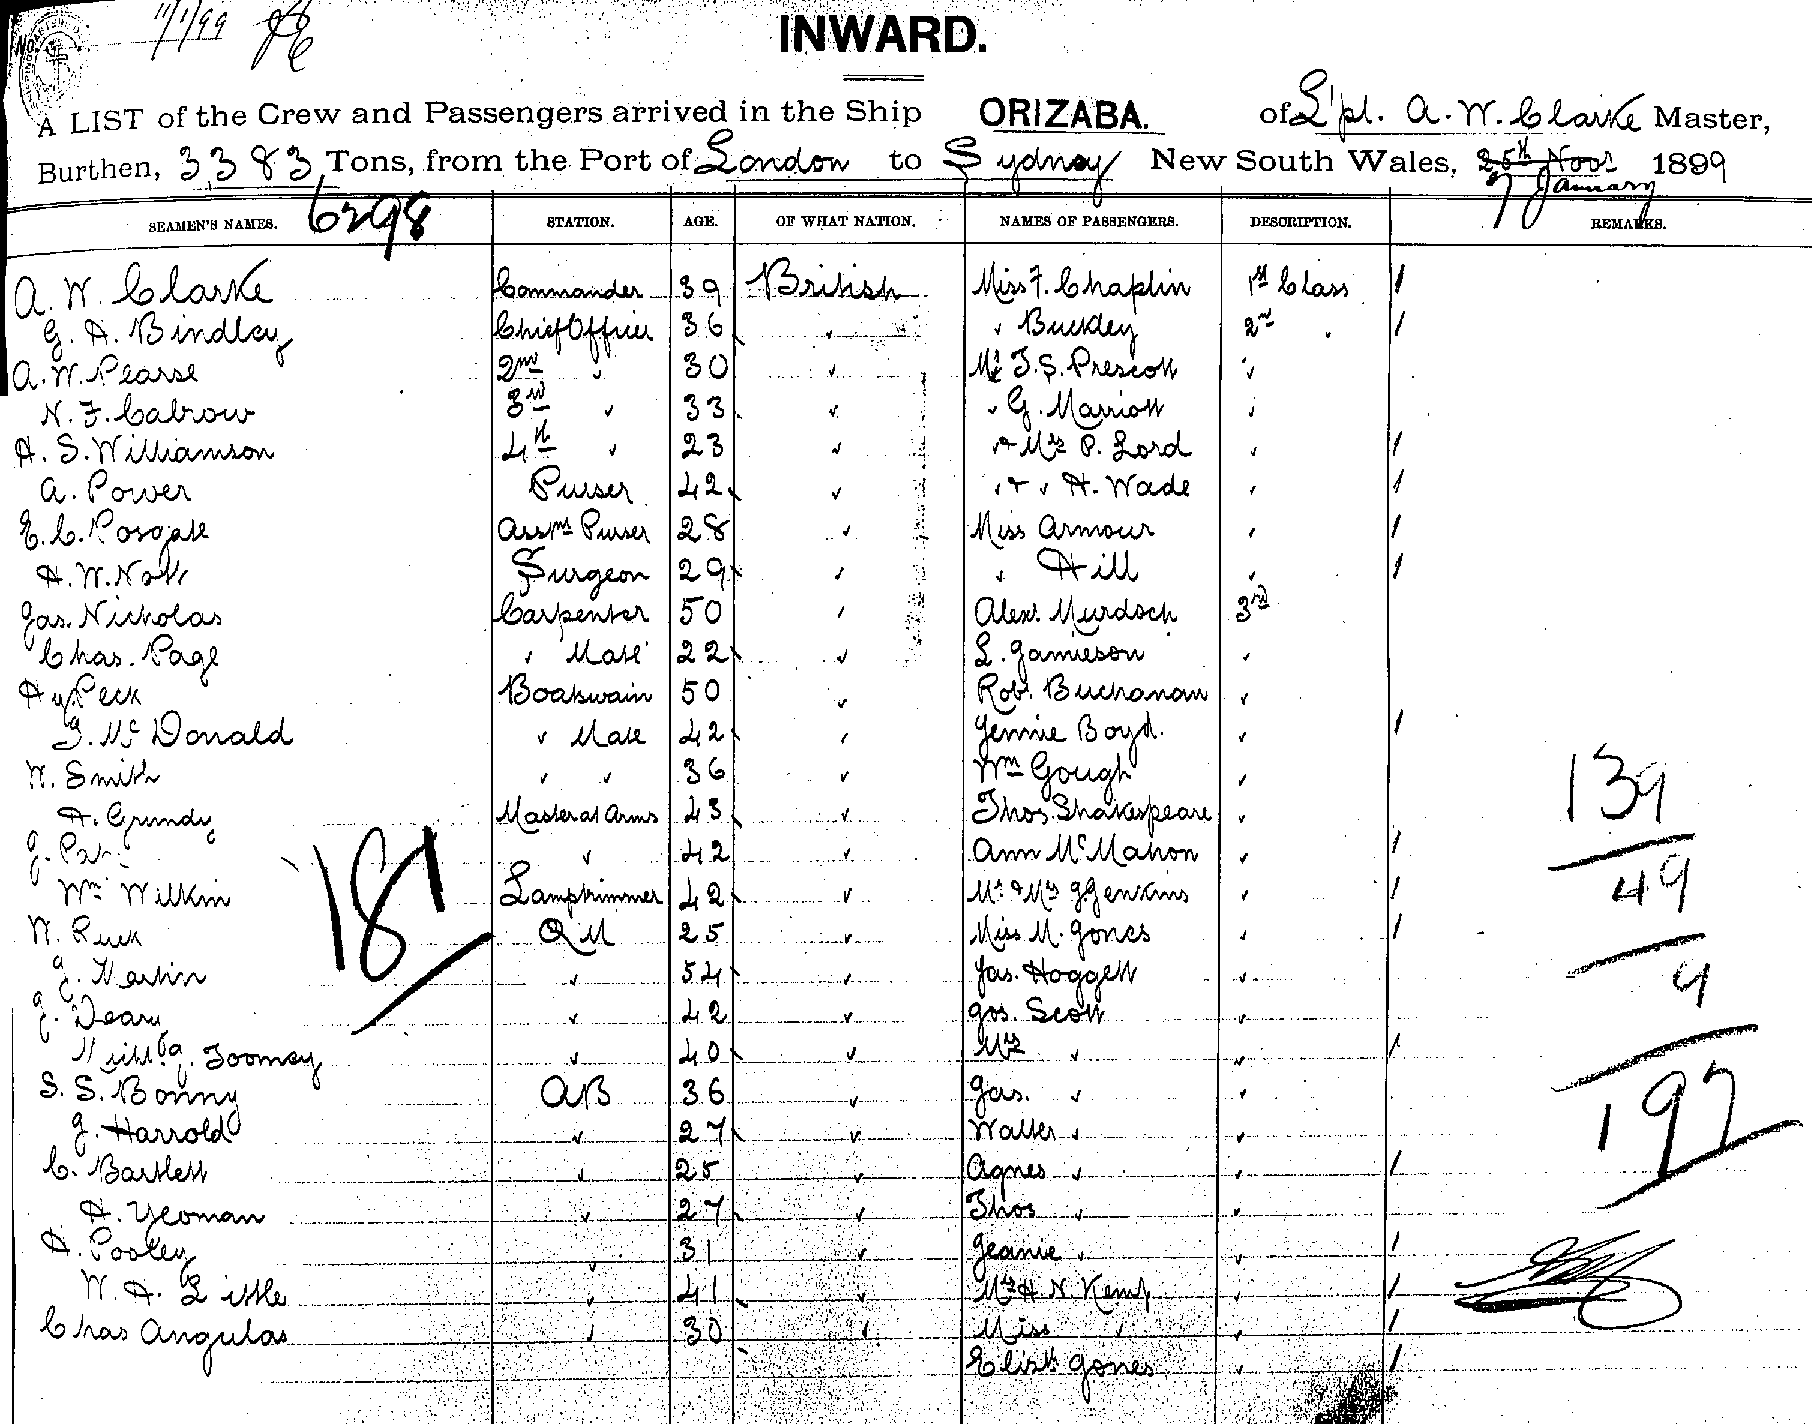 11/1/99
INWARD.
A LIST of the Crew and Passengers arrived in the Ship ORIZABA. of A. W. Clarke Master,
Burthen, 3383 Tons, from the Port of London to Sydney New South Wales, 25th Novr 1899
7 January
6298
SEAMEN'S NAMES. STATION. AGE. OF WHAT NATION. NAMES OF PASSENGERS. DESCRIPTION. REMARKS.
A. W. Clarke Commander 39 British Miss F. Chaplin 1st Class /
G. A. Bindley Chief Officer 36 " " Buckley 2nd " /
A. W. Pearse 2nd " 30 " Mr J. S. Prescott "
N. F. Calrow 3rd " 33 " " G. Marriott "
H. S. Williamson 4th " 23 " " + Mrs P. Lord " /
A. Power Purser 42 " " + " H. Wade " /
E. C. Posgate Asst Purser 28 " Miss Armour " /
H. W. Nott Surgeon 29 " " Hill " /
Jas. Nicholas Carpenter 50 " Alex. Murdoch 3rd
Chas. Page " Mate 22 " L. Jamieson "
Hy Peck Boatswain 50 " Rob. Buchanan "
J. McDonald " Mate 42 " Jennie Boyd. " /
W. Smith " " 36 " Wm Gough "
H. Grundy Master at Arms 43 " Thos. Shakespeare "
J. " 42 " Ann McMahon " /
Wm Wilkin Lamptrimmer 42 " Mr & Mrs J. Jenkins " /
W. Puck QM 25 " Miss M. Jones " /
J. Martin " 54 " Jas. Hoggett "
J. Deary " 42 " Jos. Scott "
J. Toomey " 40 " Mrs " " /
S. S. Bonny AB 36 " Jas. " "
J. Harrold " 27 " Walter " "
C. Bartlett " 25 " Agnes " " /
H. Yeoman " 27 " Thos " "
H. Pooley " 31 " Jeanie " " /
W. H. Little " 41 " Mrs H. N. Kemp " /
Chas Angulas " 30 " Miss " " /
Elizth Jones " /
181
139
49
9
197